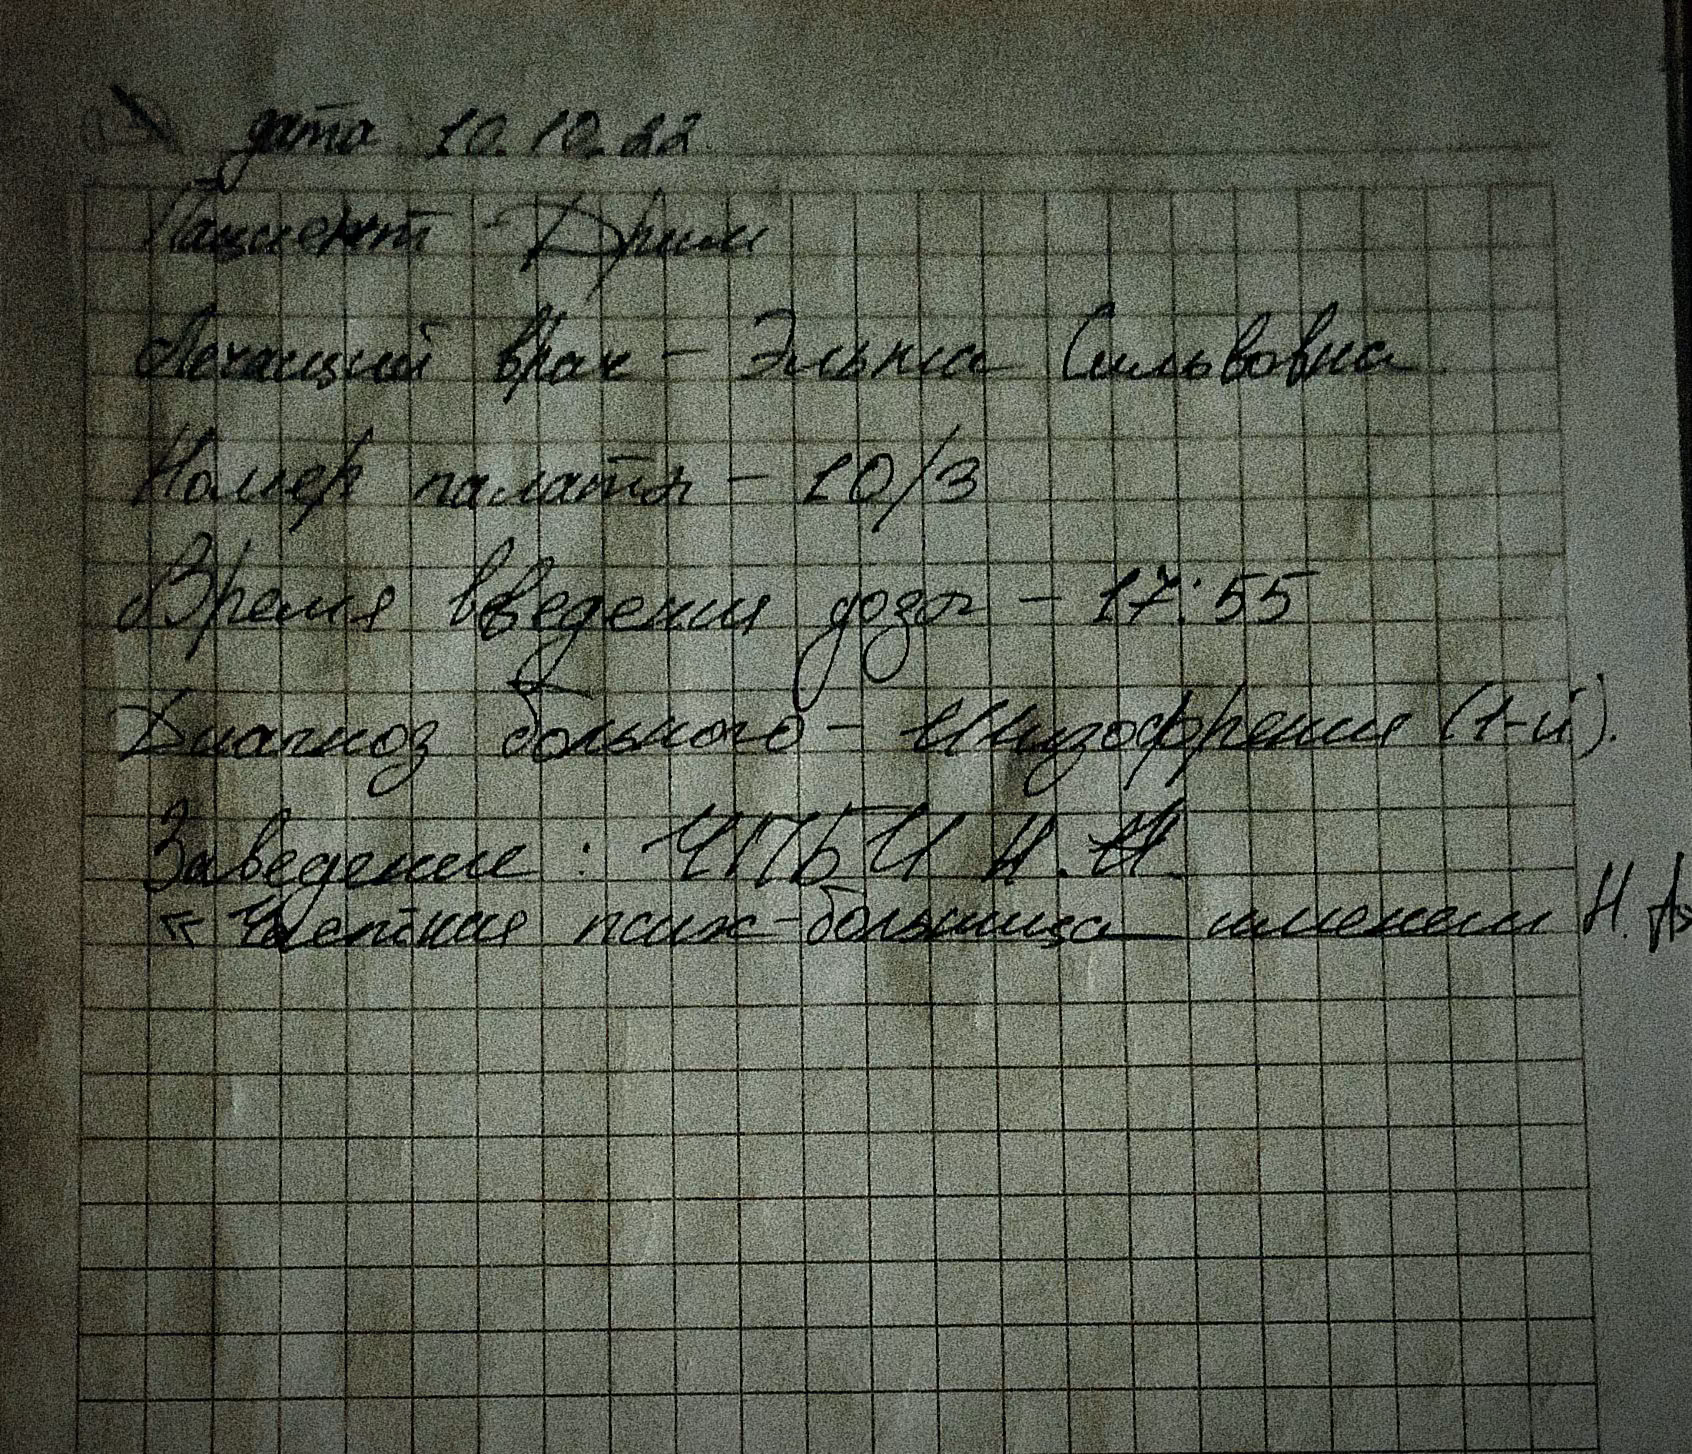 дата 10.10.22
Пациент - Дрим
Лечащий врач - Эльма Сильвовна
Номер палаты - 10/3
Время введения дозы - 17:55
Диагноз больного - Шизофрения (1-й).
Заведение: ЧПБИ Н.
« Частная псих-больница имени Н.